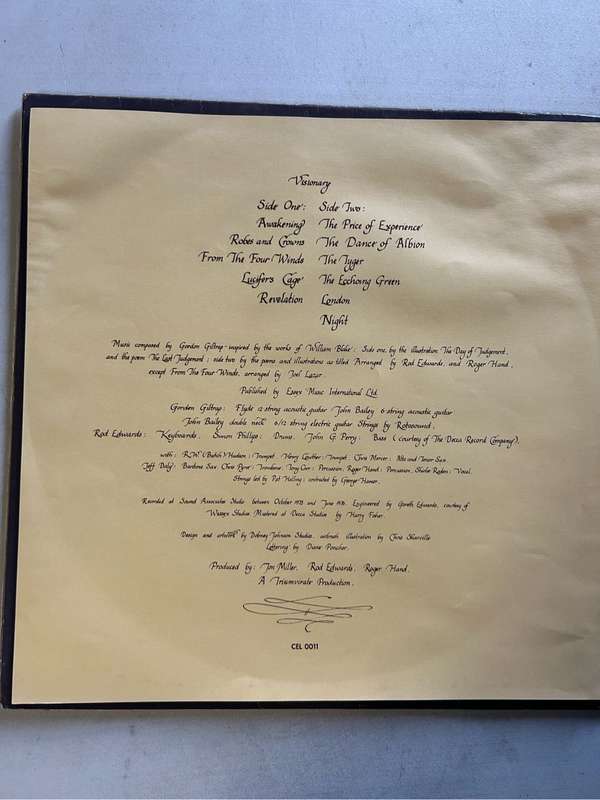 Visionary
Side One: Side Two:
Awakening The Price of Experience
Robes and Crowns The Dance of Albion
From The Four Winds The Tyger
Lucifer's Cage The Ecchoing Green
Revelation London
Night
Music composed by Gordon Giltrap inspired by the works of William Blake: Side one, by the illustration The Day of Judgement,
and the poem The Last Judgement: side two by the poems and illustrations as titled Arranged by Rod Edwards, and Roger Hand,
except From The Four Winds, arranged by Joel Lazar.
Published by Essex Music International Ltd.
Gordon Giltrap: Fylde 12 string acoustic guitar John Bailey 6 string acoustic guitar
John Bailey double neck 6/12 string electric guitar Strings by Rotosound.
Rod Edwards: Keyboards, Simon Phillips: Drums, John G. Perry: Bass (courtesy of The Decca Record Company),
with: R.M. (Butch) Hudson: Trumpet, Henry Lowther: Trumpet: Chris Mercer: Alto and Tenor Sax,
Jeff Daly: Baritone Sax Chris Pyne: Trombone, Tony Carr: Percussion, Roger Hand: Percussion, Shirlie Roden: Vocal.
Strings led by Pat Halling: contracted by George Hamer.
Recorded at Sound Associates Studio between October 1975 and June 1976. Engineered by Gareth Edwards, courtesy of
Wessex Studios Mastered at Decca Studios by Harry Fisher.
Design and artwork by Dabney Johnson Studios, illustration by Chris
Lettering by Diane
Produced by: Jon Miller, Rod Edwards, Roger Hand,
A Triumvirate Production.
CEL 0011